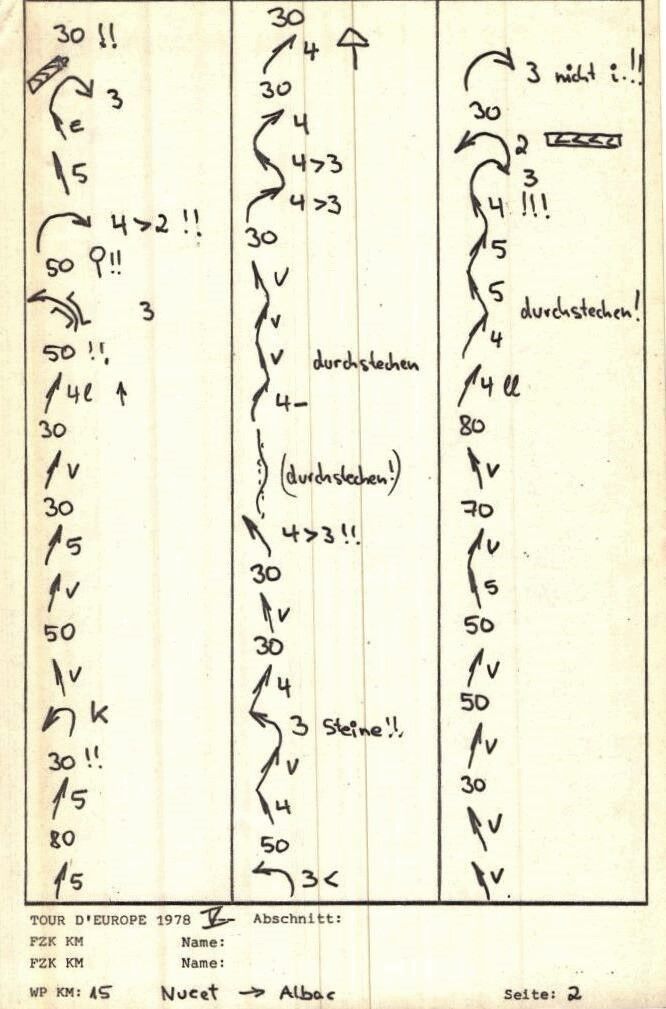 30 !!
3
e
5
4 > 2 !!
50 !!
3
50 !!
4 l
30
v
30
5
v
50
v
K
30 !!
5
80
5
30
4
30
4
4 > 3
4 > 3
30
v
v
v durchstechen
4 -
(durchstechen!)
4 > 3 !!
30
v
30
4
3 Steine!!
v
4
50
3 <
3 nicht i..!!
30
2
3
4 !!!
5
5
durchstechen!
4
4 ll
80
v
70
v
5
50
v
50
v
30
v
v
TOUR D'EUROPE 1978 V Abschnitt:
FZK KM Name:
FZK KM Name:
WP KM: 15 Nucet → Albac Seite: 2